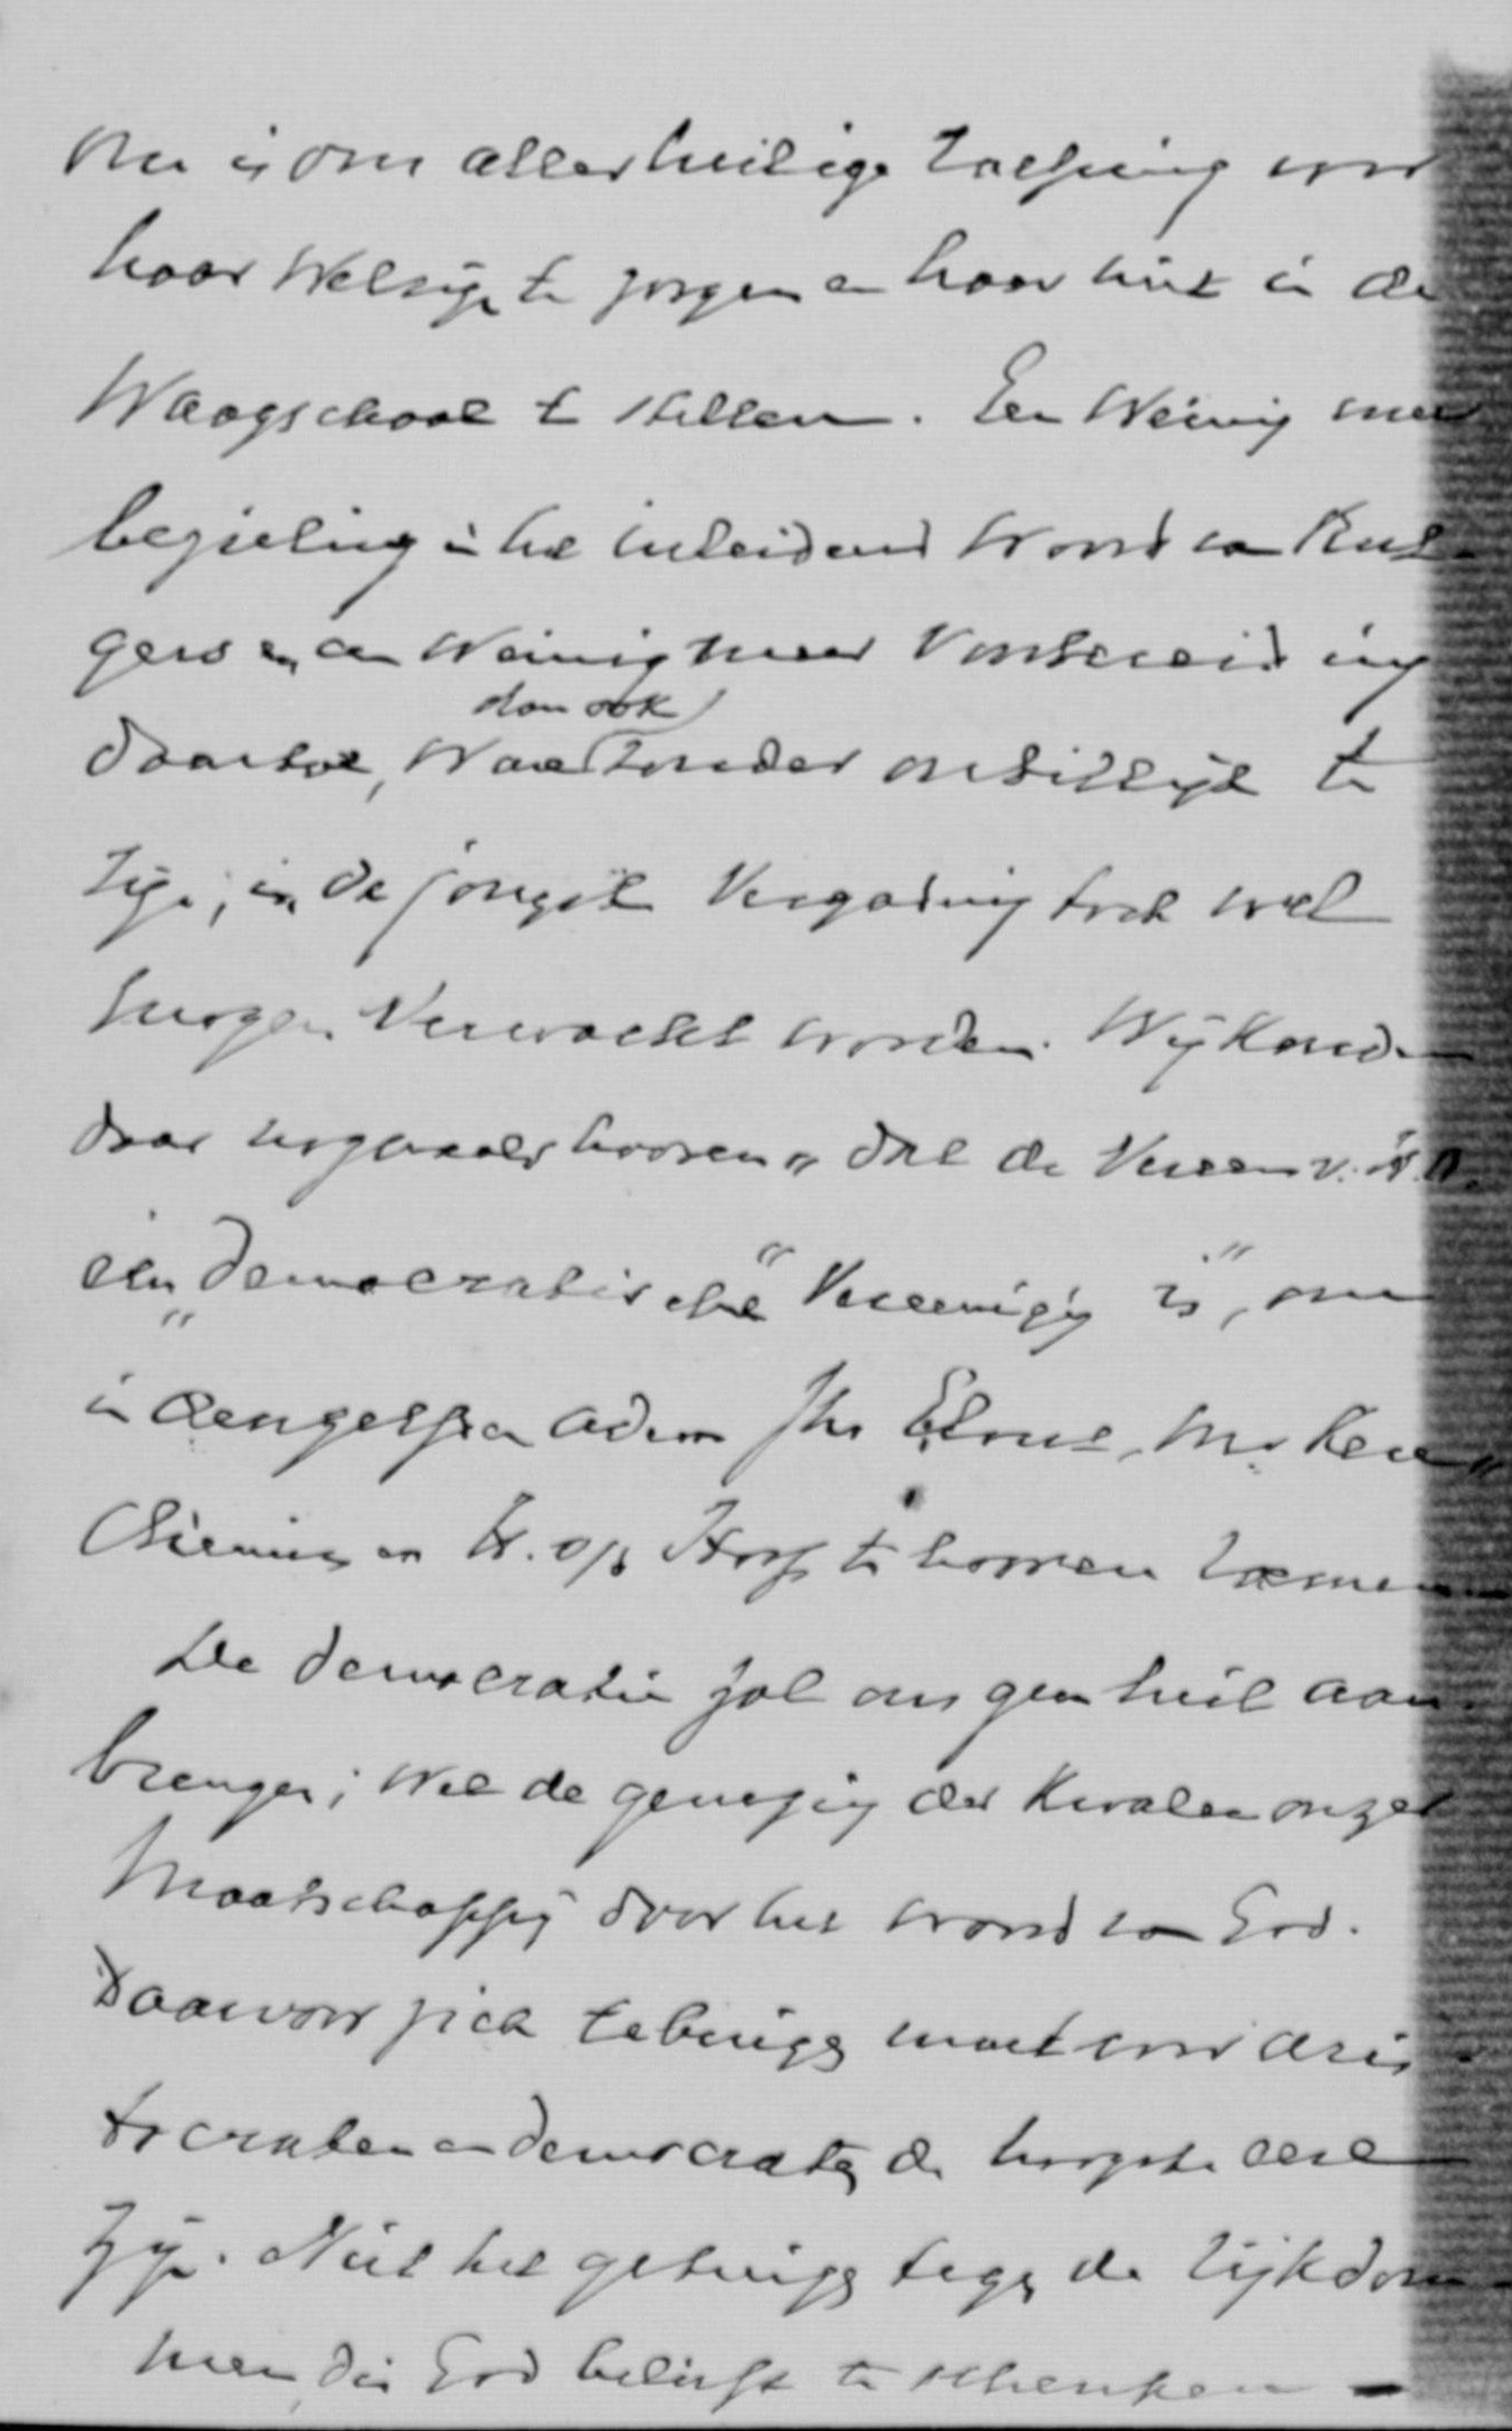 Nu is onze allerheilige roeping voor
haar welzijn te zorgen en haar niet in de
Waagschaal te stellen. Een Weinig meer
bezieling in het inleidend woord van Rut-
gers en een Weinig meer Voorbereiding
dan ook
daartoe, Ware zonder onbillijk te
zijn, in de jongste Vergadering toch wel
mogen Verwacht worden. Wij konden
daar nogmaals hooren „dat de Vereen v. H.O.
een „democratische" Vereeniging is", om
in denzelfden adem Jhr Elout,
en H. op Horst te hooren noemen
De democratie zal ons geen heil aan-
brengen; Wel de genezing der Kwalen onzer
Maatschappij door het woord van God.
Daarvoor zich te buigen moet voor aris-
tocraten en democraten de hoogste eere
zijn. Niet het getuigen tegen de rijkdom-
men, die God belieft te schenken –